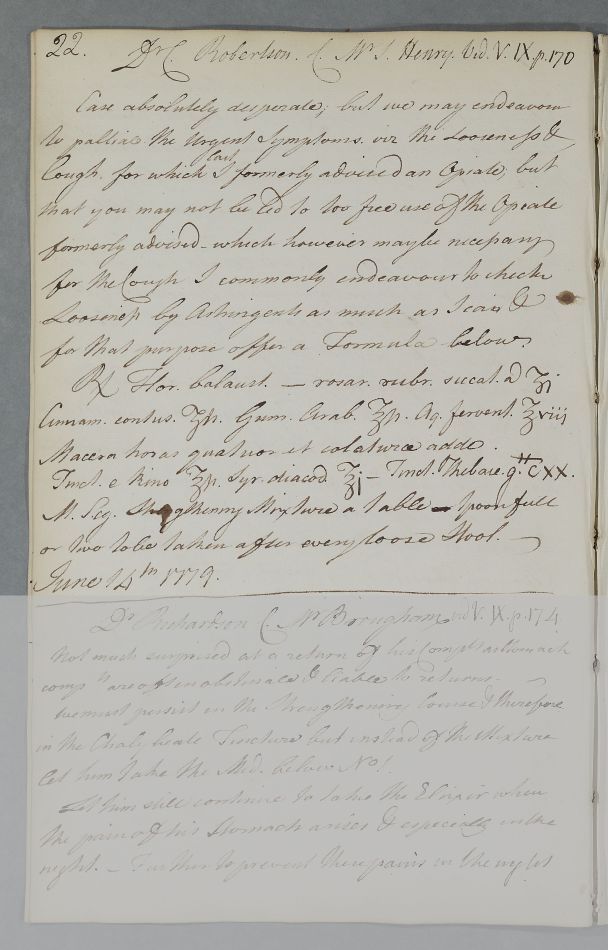 22. Dr C. Robertson. C. Mr J. Henry. Vid. V. IX p. 170
Case absolutely desperate; but we may endeavour
to palliate the urgent Symptoms. viz the Looseness &
Cough. for which I last formerly advised an Opiate, but
that you may not be led to too free use of the Opiate
formerly advised - which however may be necessary
for the Cough I commonly endeavour to check
Looseness by Astringents as much as I can &
for that purpose offer a Formula below.
℞ Flor. balaust. — rosar. rubr. siccat. a ʒi
Cinnam. contus. ʒß. Gum. Arab. ʒß. Aq. fervent. ℥viii
Macera horas quatuor et colaturæ adde
Tinct. e Kino ℥ß. Syr. diacod ℥j — Tinct. Thebaic. gtt CXX.
M. Sig. Mixture a table - spoonfull
or two to be taken after every loose Stool. —
June 14th 1779.
Dr Richardson C. Mr Brougham vid V. IX. p. 174
Not much surprised at a return of his Compts as Stomach
compts are often obstinate & liable to returns. —
We must persist in the Strengthening Course & therefore
in the Chalybeate Tincture but instead of the Mixture
let him take the Med. below No 1.
Let him still continue to take the Elixir when
the pain of his Stomach arises & especially in the
night. — Further to prevent these pains in the night